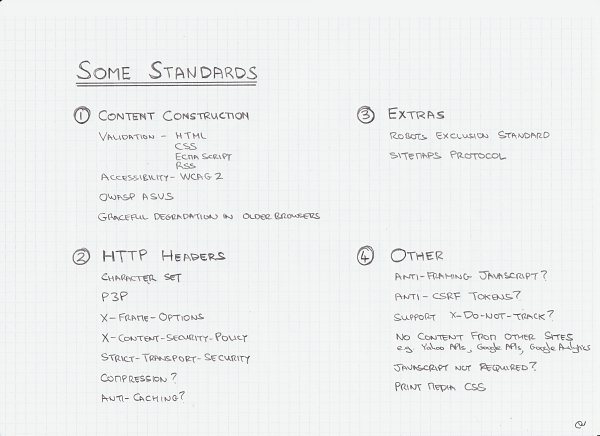 SOME STANDARDS
① CONTENT CONSTRUCTION
VALIDATION - HTML
CSS
ECMASCRIPT
RSS
ACCESSIBILITY - WCAG 2
OWASP ASVS
GRACEFUL DEGRADATION IN OLDER BROWSERS
② HTTP HEADERS
CHARACTER SET
P3P
X-FRAME-OPTIONS
X-CONTENT-SECURITY-POLICY
STRICT-TRANSPORT-SECURITY
COMPRESSION?
ANTI-CACHING?
③ EXTRAS
ROBOTS EXCLUSION STANDARD
SITEMAPS PROTOCOL
④ OTHER
ANTI-FRAMING JAVASCRIPT?
ANTI-CSRF TOKENS?
SUPPORT X-DO-NOT-TRACK?
NO CONTENT FROM OTHER SITES
e.g. Yahoo APIs, Google APIs, Google Analytics
JAVASCRIPT NOT REQUIRED?
PRINT MEDIA CSS